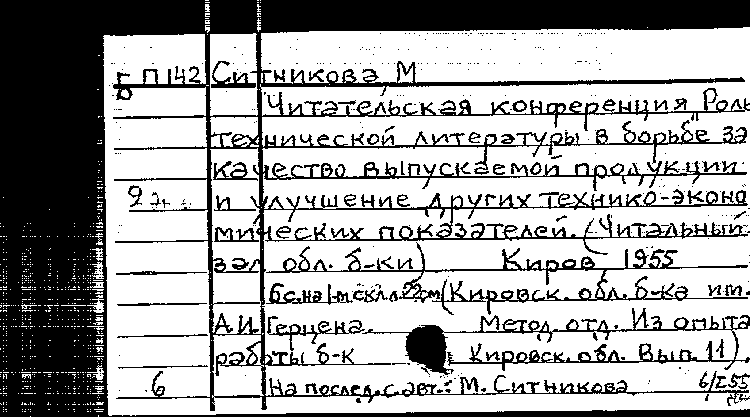 Б П 142 Ситникова, М
Читательская конференция „Роль
технической литературы в борьбе за
качество выпускаемой продукции
2 эк. и улучшение других технико-эконо
мических показателей. (Читальный
зал обл. б-ки) Киров, 1955
6 с. на 1-м скл. л. 22 см (Кировск. обл. б-ка им.
А.И. Герцена. Метод. отд. Из опыта
работы б-к Кировск. обл. Вып. 11).
6 На послед. с. авт.: М. Ситникова 6/I 55